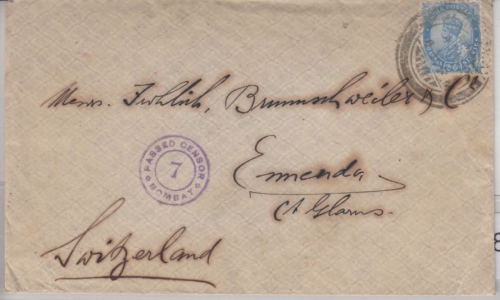 Messrs. Fröhlich, Brunnschweiler & Co
PASSED CENSOR
7
BOMBAY
Ennenda
Ct Glarus.
Switzerland
8